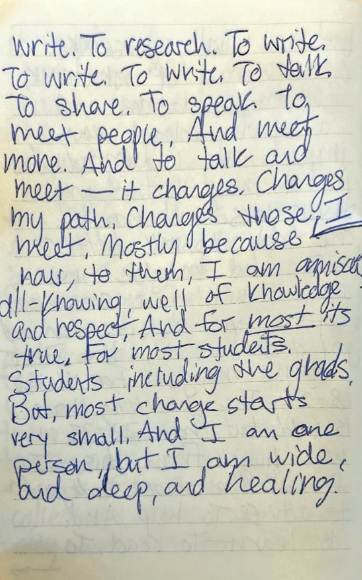 write. To research. To write.
To write. To write. To talk.
To share. To speak. To
meet people. And meet
more. And to talk and
meet — it changes. Changes
my path. Changes those I
meet. Mostly because
now, to them, I am
all-knowing, well of knowledge
and respect. And for most its
true, for most students.
Students including the grads.
But, most change starts
very small. And I am one
person, but I am wide,
and deep, and healing.